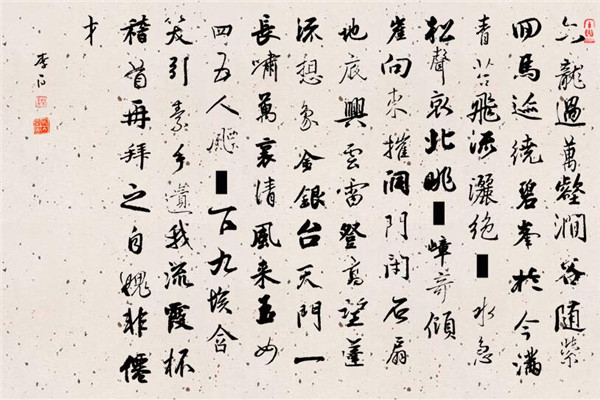 六龍過萬壑澗谷隨縈
回馬迹繞碧峯於今滿
青苔飛流灑絕■水急
松聲哀北眺■嶂奇傾
崖向東摧洞門閉石扇
地底興雲雷登高望蓬
想象金銀台天門一
長嘯萬裏清風来玉女
四五人飄■下九垓含
笑引素手遺我流霞杯
稽首再拜之自愧非僊
才
李白